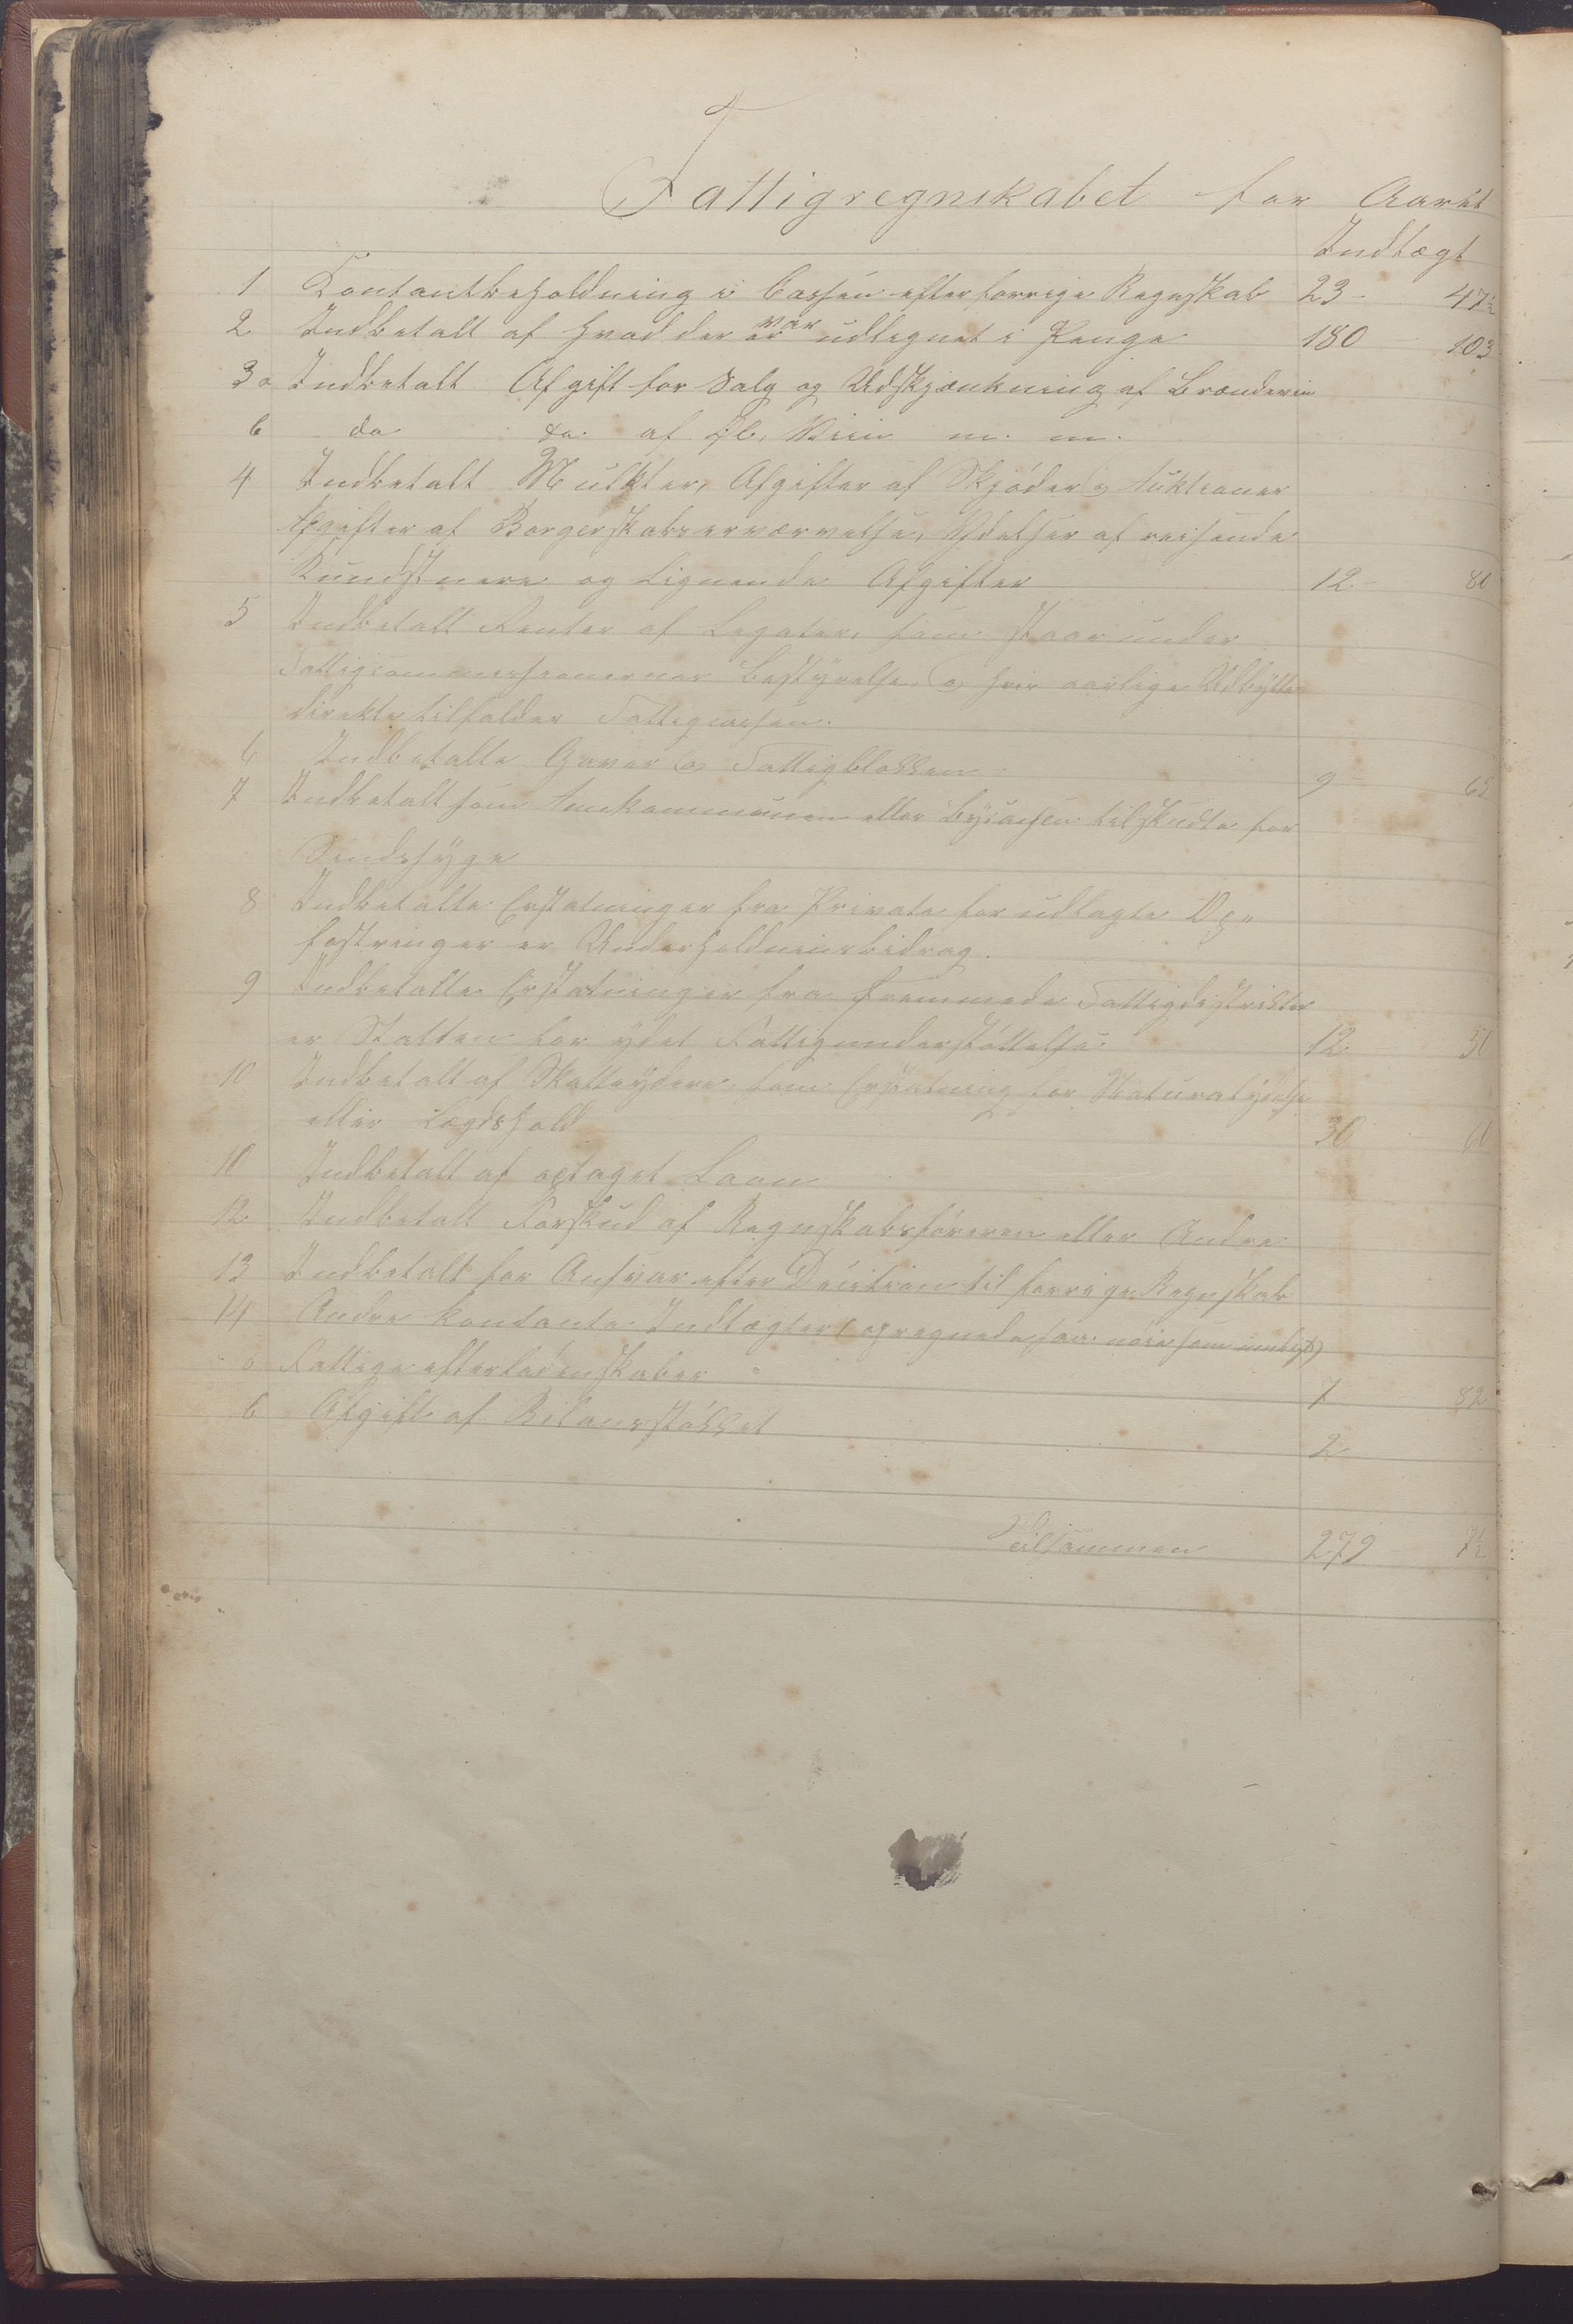 Fattigregnskabet for Aaret
Indtægt
1 Kontantbeholdning i Cassen efter forrige Regnskab 23 - 47½
2 Indbetalt af hvad der er var udlignet i Penge 180 103
3 a Indbetalt Afgift for Salg og Udskjænkning af Brændeviin
b do do af Øl, Viin m. m.
4 Indbetalt Mulkter, Afgifter af Skjøder og Auktioner
Afgifter af Borgerskabserværvelse, Ydelser af reisende
Kunstnere og lignende Afgifter 12 -
5 Indbetalt Renter af Legater, som staar under
Fattigcommissionernes Bestyrelse, og hvis aarlige Udbytte
direkte tilfalder Fattigcassen.
6 Indbetalte Gaver og Fattigblokken 9 - 65
7 Indbetalt som Amtkommunen eller Bycassen tilskudte for
Sindssyge
8 Indbetalte Erstatninger fra Private for udlagte Op„
fostringer er Underholdningsbidrag.
9 Indbetalte Erstatninger fra fremmede Fattigdistrikter
er Statten for ydet Fattigunderstøttelse 12
10 Indbetalt af Skatteydere som Erstatning for Naturalydelse
eller Lægdshold 30
10 Indbetalt af optaget Laan
12 Indbetalt Forskud af Regnskabsføreren eller Andre
13 Indbetalt for Ansvar efter Decition til forrige Regnskab
14 Andre kontante Indtægter (opregnede saa nøie som muligt)
a Fattige efterladenskaber 7 82
b Afgift af 2
Tilsammen 279